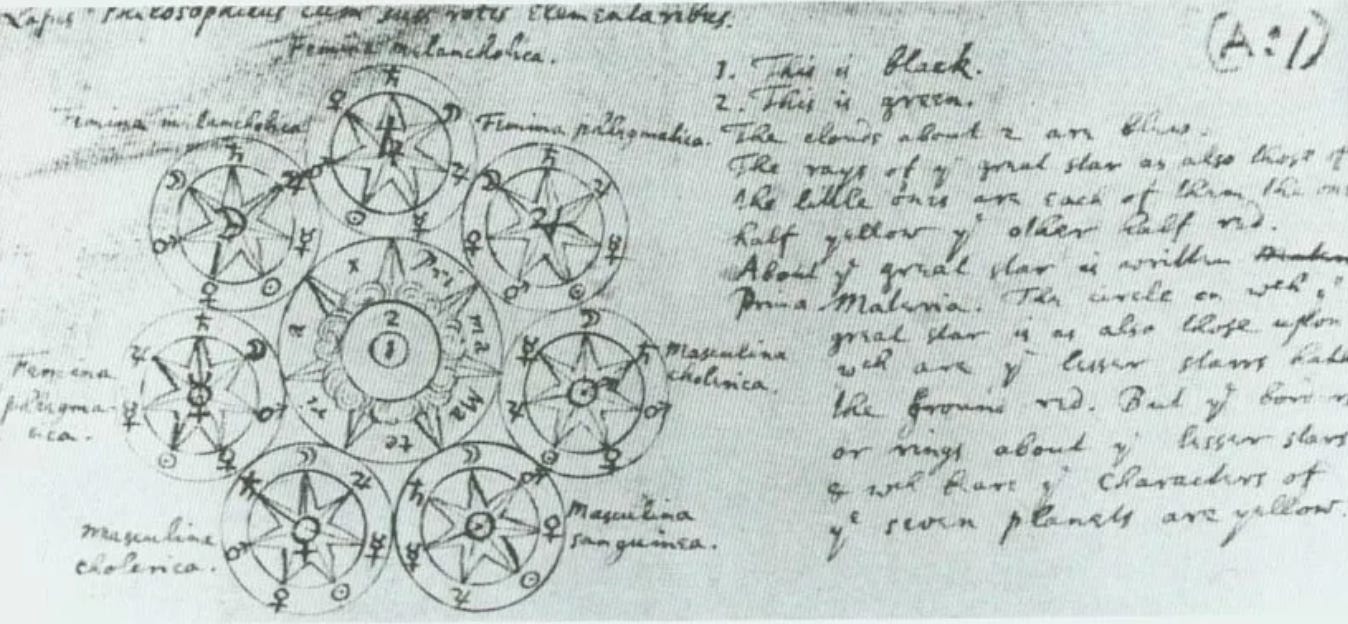 Lapis Philosophicus cum suis rotis elementaribus.
(A:1)
Femina melancholica.
Femina melancholica
Femina phlegmatica.
Femina
phlegma-
tica.
Masculina
cholerica.
Masculina
cholerica.
Masculina
sanguinea.
Pri
ma
Ma
te
ri
a
X
2
1
1. This is black.
2. This is green.
The clouds about 2 are blew.
The rays of yͤ great star as also those of
the little ones are each of them the one
half yellow yͤ other half red.
About yͤ great star is written
Prima Materia. The circle on wch yͤ
great star is as also those upon
wch are yͤ lesser starrs have
the ground red. But yͤ borders
or rings about yͤ lesser stars
& wch beare yͤ characters of
yͤ seven planets are yellow.